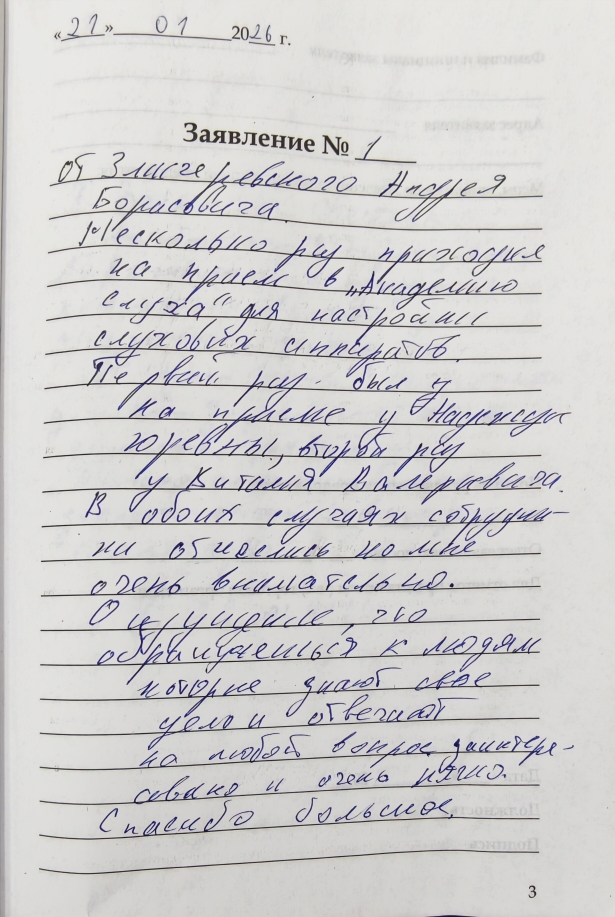 «21» 01 2026 г.
Заявление № 1
от Злисчеревского Андрея
Борисовича.
Несколько раз приходил
на прием в „Академию
слуха“ для настройки
слуховых аппаратов.
Первый раз был у
на приеме у Надежды
Юревны, второй раз
у Виталия Валериевича.
В обоих случаях сотрудни-
ки отнеслись ко мне
очень внимательно.
Ощущение, что
обращаешься к людям
которые знают свое
дело и отвечают
на любой вопрос заинтере-
совано и очень
Спасибо большое.
3